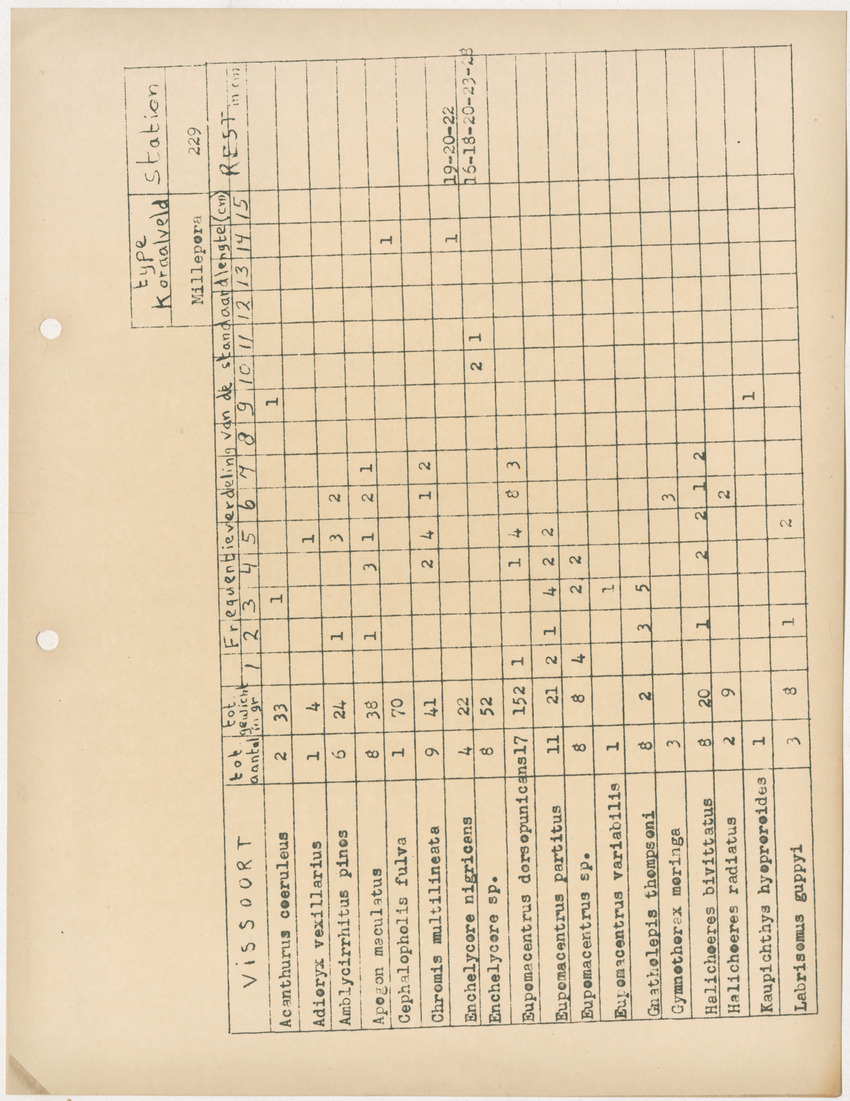 type Koraalveld Station
Millepora 229
VISSOORT tot. aantal tot. gewicht in gr Frequentieverdeling van de standaardlengte (cm) REST in cm
1 2 3 4 5 6 7 8 9 10 11 12 13 14 15
Acanthurus coeruleus 2 33 1 1
Adioryx vexillarius 1 4 1
Amblycirrhitus pinos 6 24 1 3 2
Apogon maculatus 8 38 1 3 1 2 1
Cephalopholis fulva 1 70 1
Chromis multilineata 9 41 2 4 1 2
Enchelycore nigricans 4 22 1 19-20-22
Enchelycore sp. 8 52 2 1 16-18-20-23-28
Eupomacentrus dorsopunicans 17 152 1 1 4 8 3
Eupomacentrus partitus 11 21 2 1 4 2 2
Eupomacentrus sp. 8 8 4 2 2
Eupomacentrus variabilis 1 1
Gnatholepis thompsoni 8 2 3 5
Gymnothorax moringa 3 3
Halichoeres bivittatus 8 20 1 2 2 1 2
Halichoeres radiatus 2 9 2
Kaupichthys hyoproroides 1 1
Labrisomus guppyi 3 8 1 2